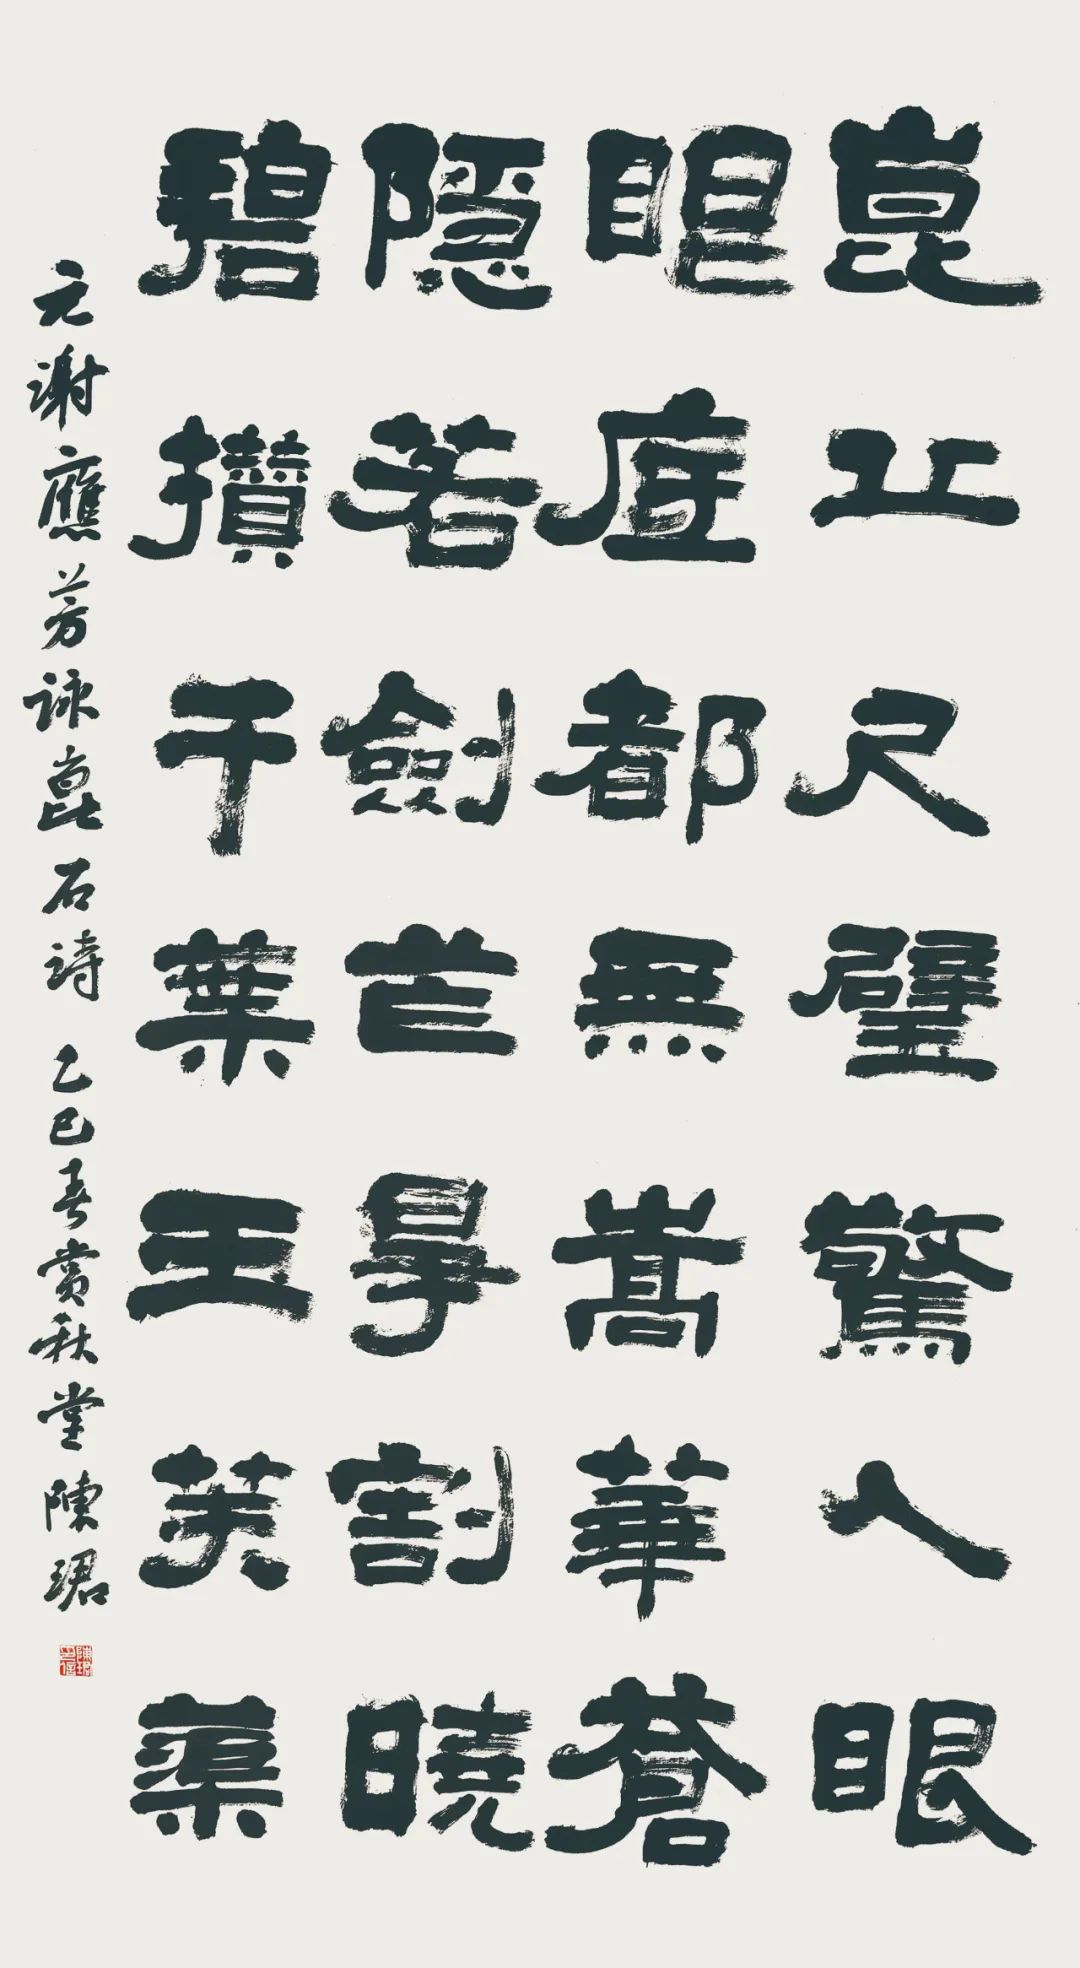 崑丘尺璧驚人眼
眼底都無嵩華蒼
隱若劍芒割曉
碧攢千葉玉芙蕖
元謝應芳詠崑石詩 乙巳春賞秋堂陳珺
陳珺印信